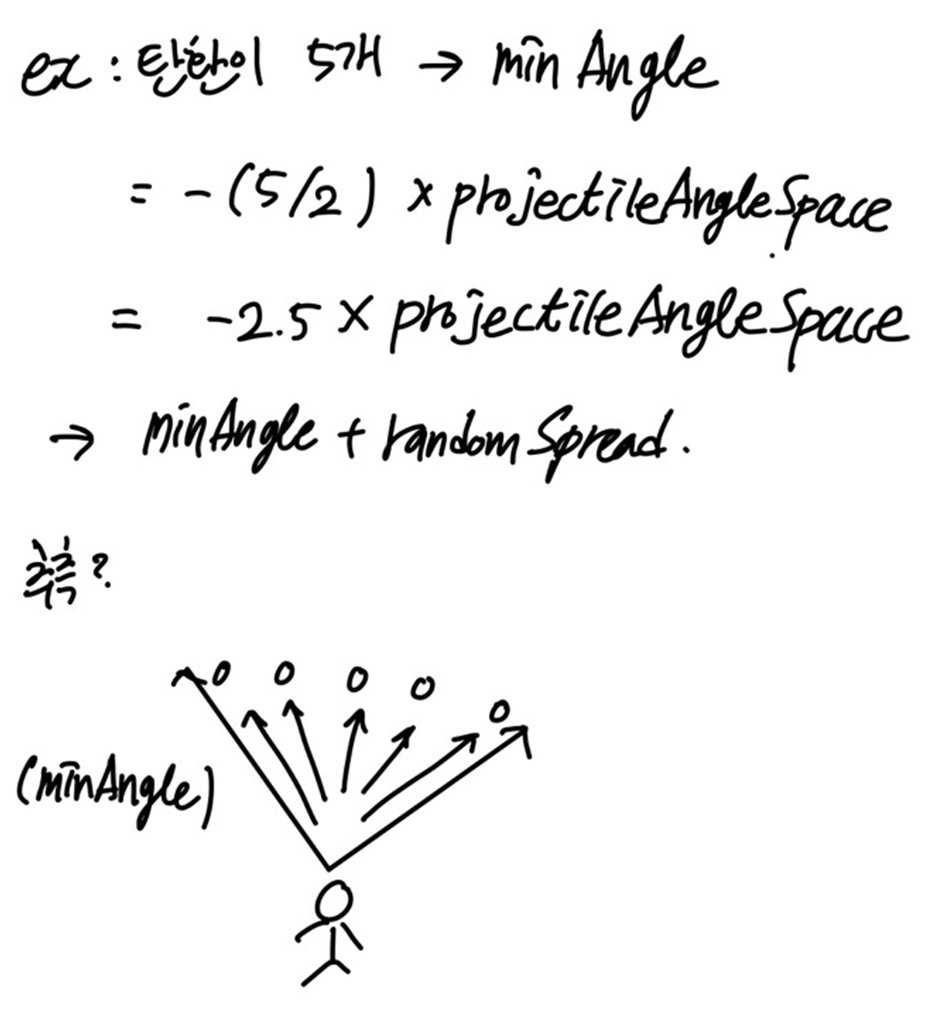 ex : 탄환이 5개 → min Angle
= - (5/2) × projectileAngleSpace
= -2.5 × projectileAngleSpace
→ minAngle + randomSpread.
쭉?
(minAngle)